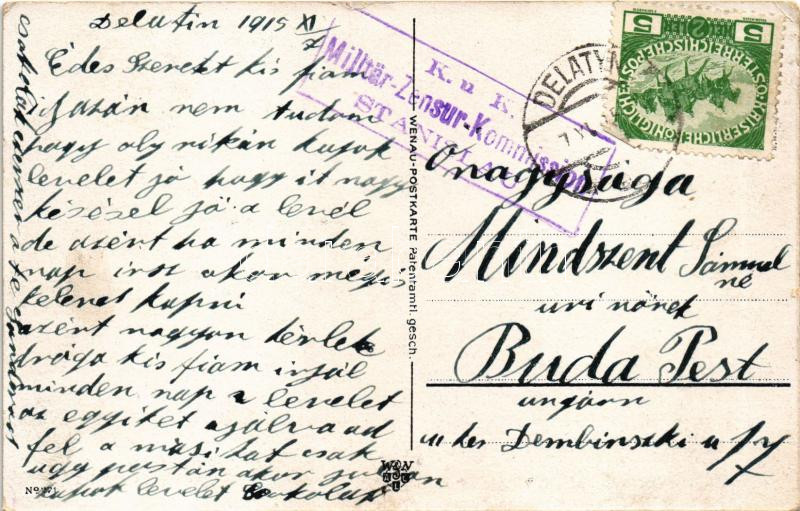 Delatin 1915 XI/7
Édes Szeretet kis fiam
igazán nem tudom
hogy oly ritkán kapok
levelet jó hogy it nagy
késésel jö a levél
de azért ha minden
nap irsz akor mégis
kelenet kapni
azért nagyon kérlek
drága kis fiam irjál
minden nap 2 levelet
az egyiket ajálva ad
fel a másikat csak
ugy postán akor
kapok levelet Csokolak
K. u. K.
Militär-Zensur-Kommission
STANISLAU
DELATYN
5 5
KAISERLICHE KÖNIGLICHE
ÖSTERREICHISCHE POST
WENAU-POSTKARTE Patentamtl. gesch.
Onagysága
Mindszent Sámuel
né
uri nönek
Buda Pest
ungarn
u ker Dembinszki u 17
WENAU
No